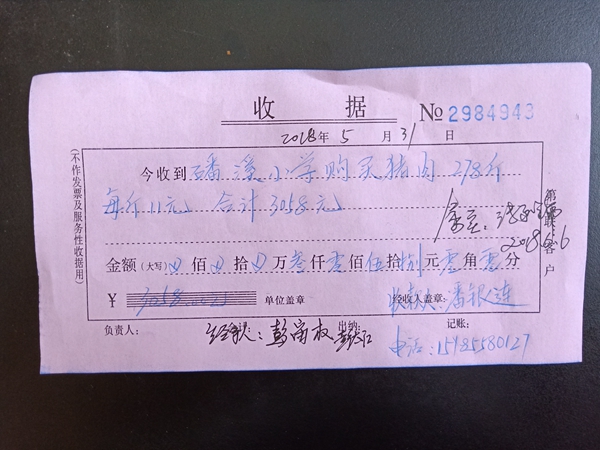 收 据 № 2984943
2018年 5 月 31 日
(不作发票及服务性收据用)
今收到 磻溪小学购买猪肉 278斤
每斤11元 合计3058元
2018.6.6
第 联 客户
金额(大写) 佰 拾 万 叁仟零佰伍拾捌元零角零分
¥ 3058.00元 单位盖章: 经收人盖章:
收款人:潘银连
负责人: 出纳: 记账:
经手人:
电话:15985580127